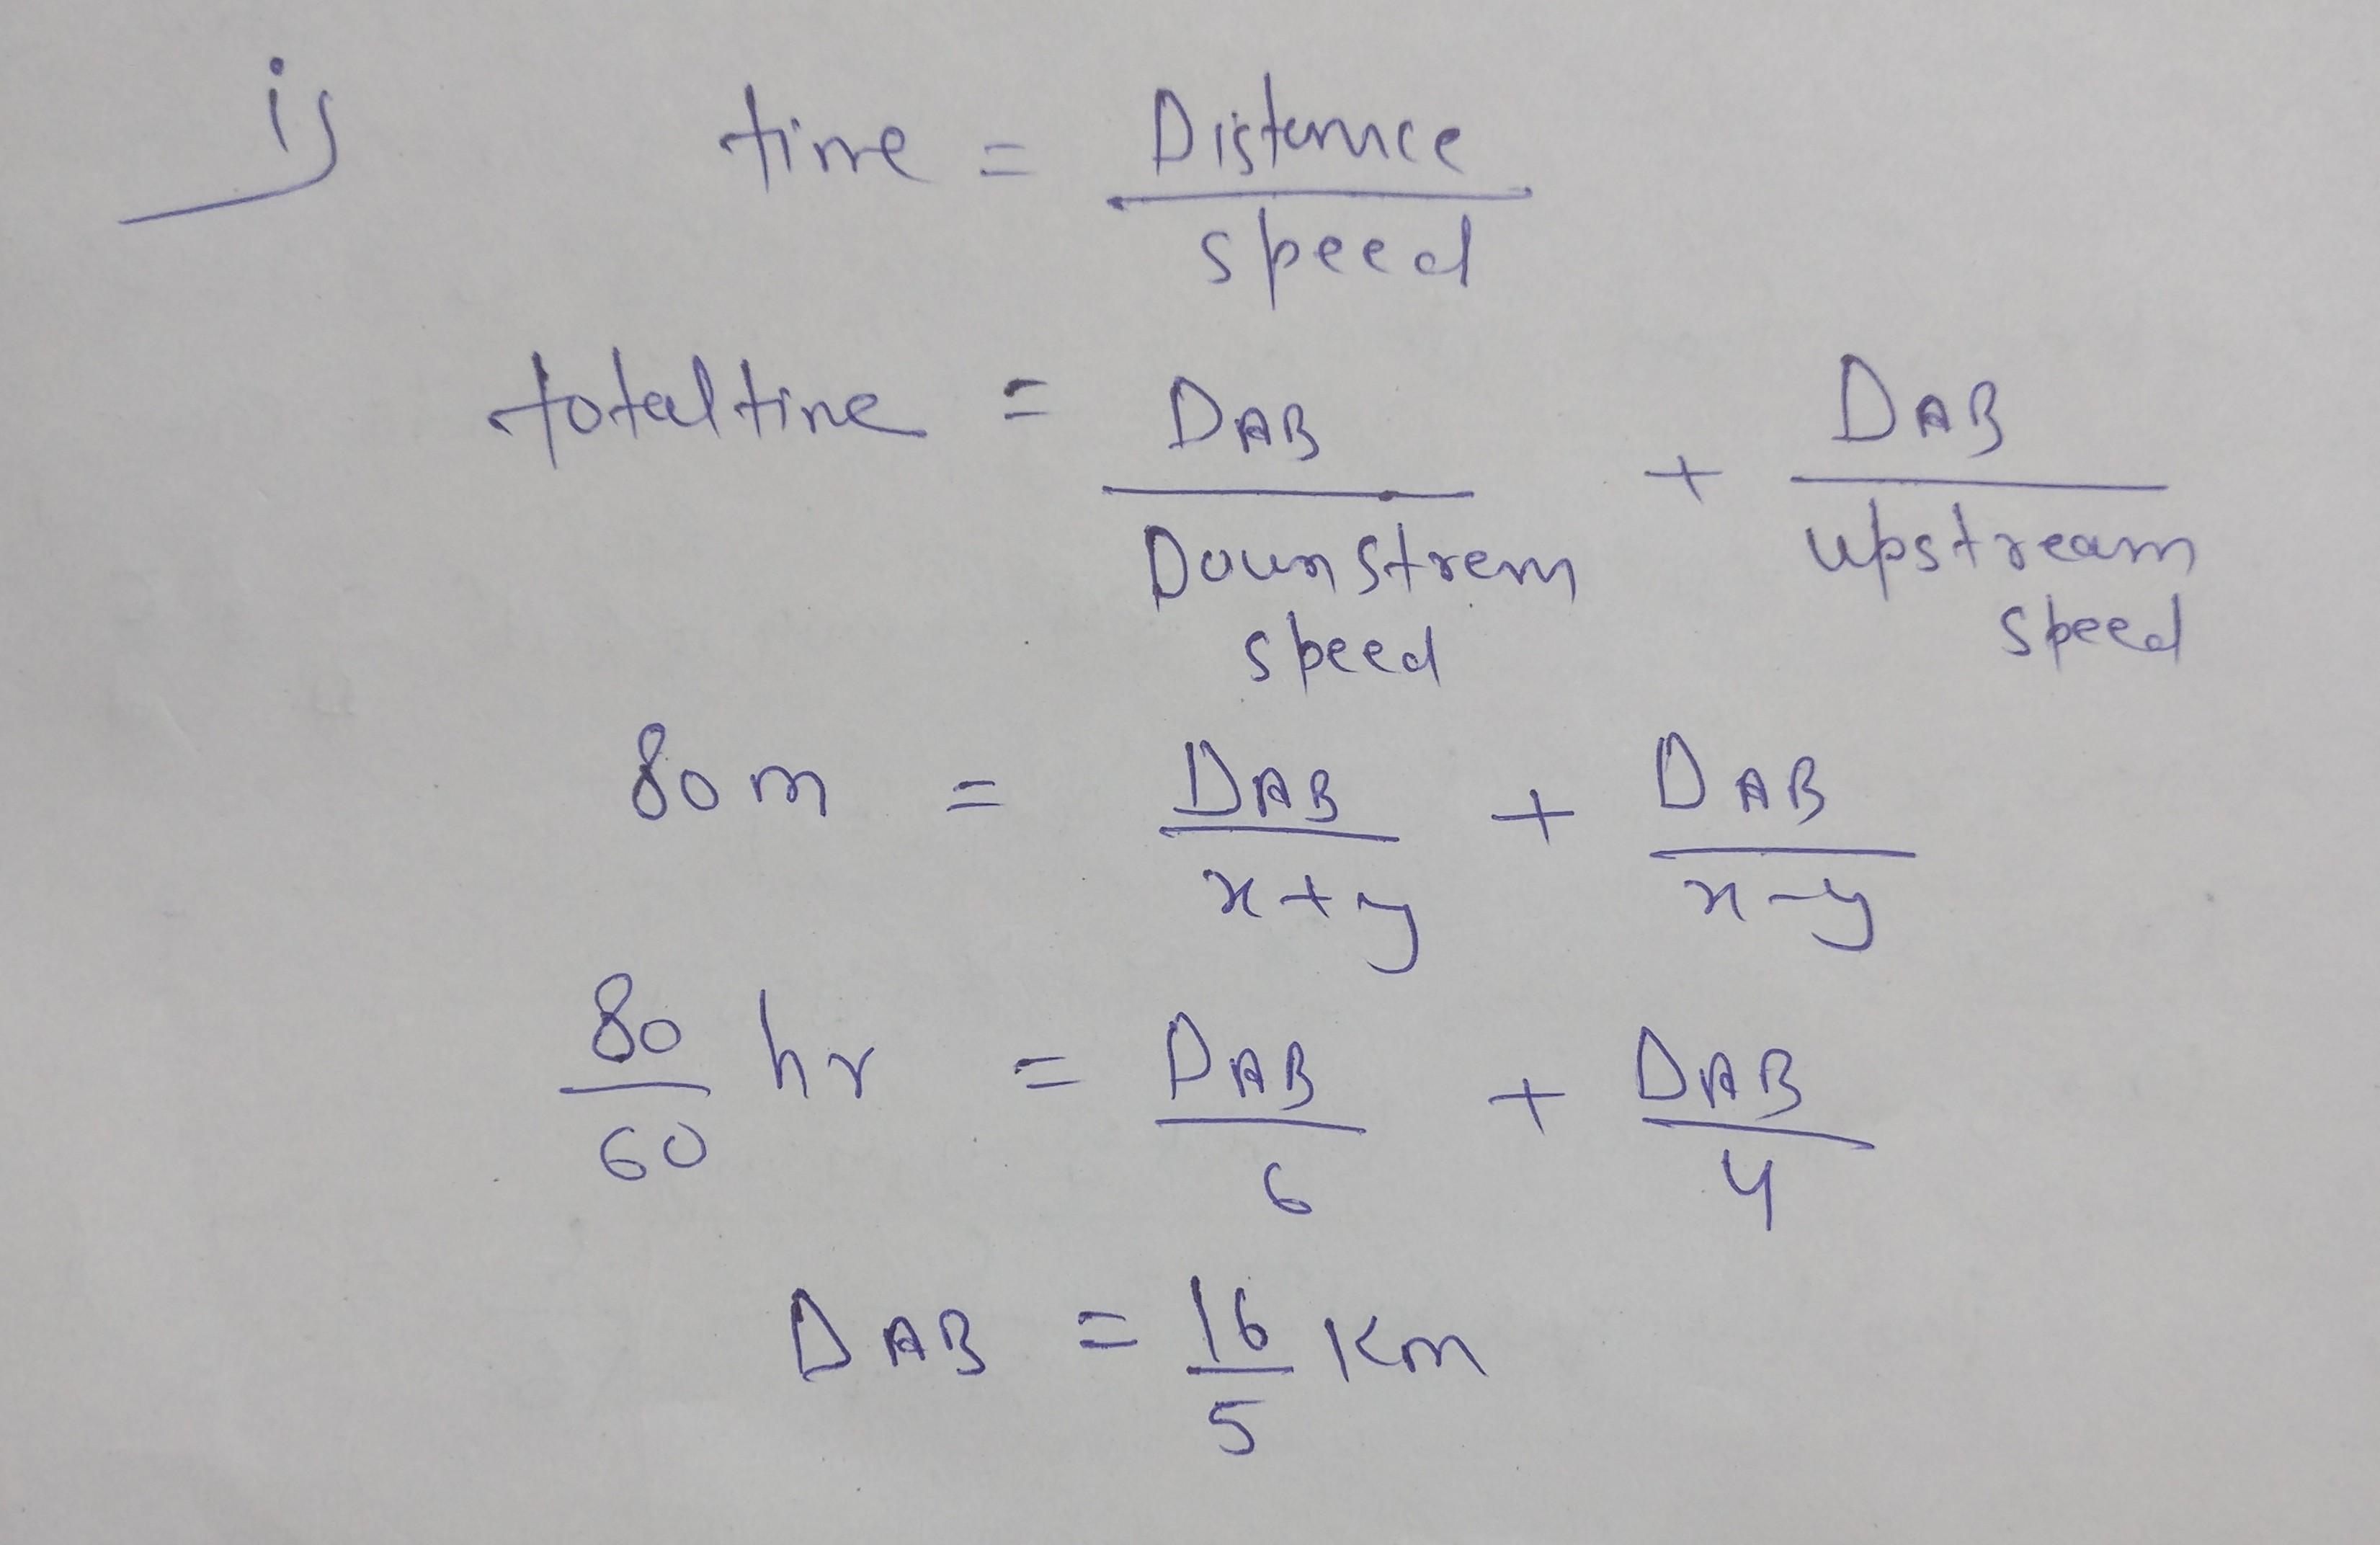 i) time = Distance / speed
total time = DAB / Downstrem speed + DAB / upstream speed
80 m = DAB / x+y + DAB / x-y
80/60 hr = DAB / 6 + DAB / 4
DAB = 16/5 Km